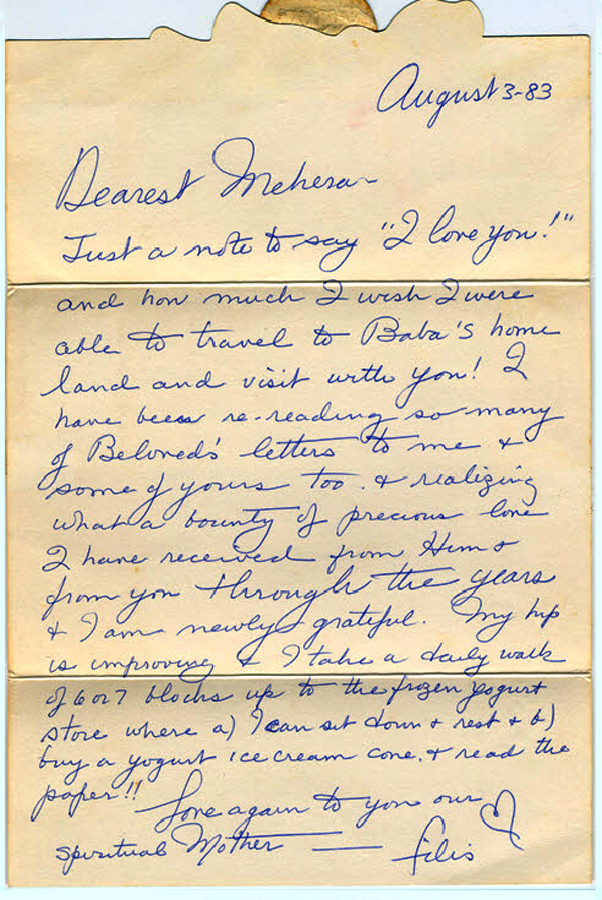 August 3-83
Dearest Mehera-
Just a note to say "I love you!"
and how much I wish I were
able to travel to Baba's home
land and visit with you! I
have been re-reading so many
of Beloved's letters to me &
some of yours too. & realizing
what a bounty of precious love
I have received from Him &
from you through the years
& I am newly grateful. My hip
is improving & I take a daily walk
of 6 or 7 blocks up to the frozen yogurt
store where a) I can sit down & rest & b)
buy a yogurt ice cream cone. & read the
paper!! Love again to you our
spiritual Mother — filis